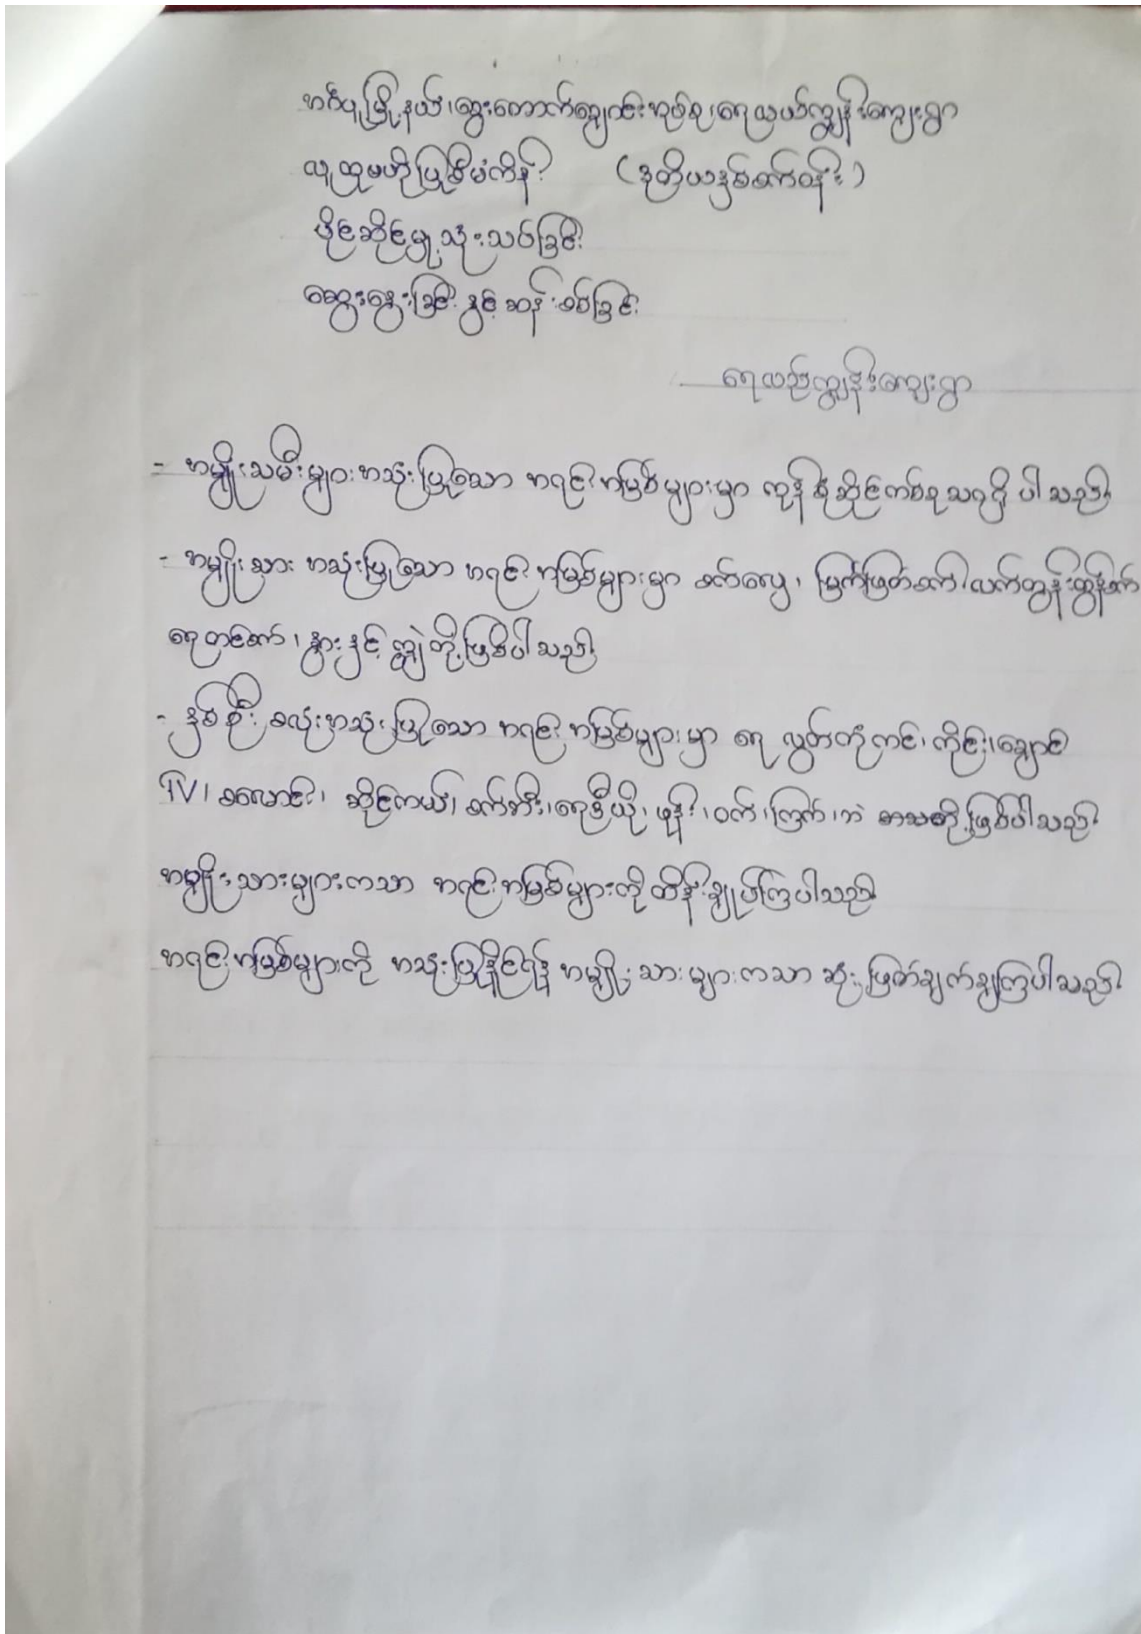 အင်္ဂပူမြို့နယ်၊ ဆွေးတောက်ချောင်းအုပ်စု၊ ရေလယ်ကျွန်းကျေးရွာ
လူထုဗဟိုပြုစီမံကိန်း (ဒုတိယနှစ်စက်ဝန်း)
ပိုင်ဆိုင်မှု သုံးသပ်ခြင်း
ဆွေးနွေးခြင်း နှင့် ဆန်းစစ်ခြင်း
ရေလည်ကျွန်းကျေးရွာ
- အမျိုးသမီးများ အသုံးပြုသော အရင်းအမြစ်များမှာ ကုန်စုံဆိုင်တစ်ခုသာရှိပါသည်။
- အမျိုးသား အသုံးပြုသော အရင်းအမြစ်များမှာ စက်လှေ၊ မြက်ဖြတ်စက်၊ လက်တွန်းထွန်စက်
ရေတင်စက်၊ နွားနှင့် ကျွဲတို့ဖြစ်ပါသည်။
- နှစ်ဦး စလုံးအသုံးပြုသော အရင်းအမြစ်များမှာ ရေ လွှတ်တုံကင်၊ ကိုင်း၊ ချောင်
TV၊ စလောင်း၊ ဆိုင်ကယ်၊ စက်ဘီး၊ ရေဒီယို၊ ဖုန်း၊ ဝက်၊ ကြက်၊ ဘဲ စသတို့ဖြစ်ပါသည်။
အမျိုးသားများကသာ အရင်းအမြစ်များကို ထိန်းချုပ်ကြပါသည်။
အရင်းအမြစ်များကို အသုံးပြုနိုင်ရန် အမျိုးသားများကသာ ဆုံးဖြတ်ချက်ချကြပါသည်။